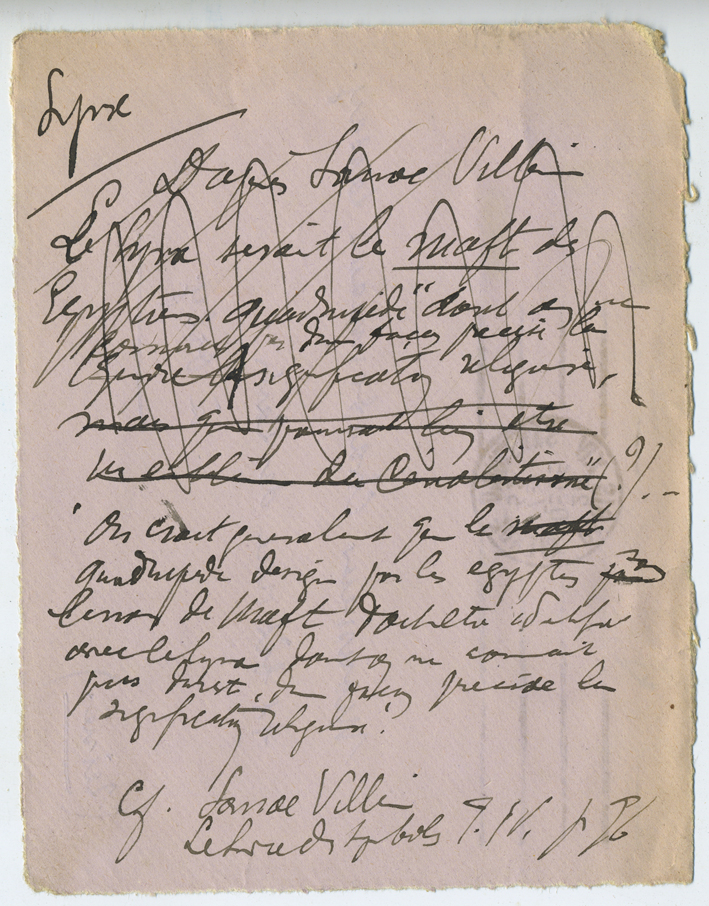 Lynx
D'après Lanoe Villène
Le lynx serait le maft des
Egyptiens quadrupède "dont on ne
connait pas d'une façon precise la
signification religieuse,
mais qui pourrait bien etre
un emblème du Cénobitisme" (?).-
On croit generalement que le maft
quadrupede designé par les egyptiens
le nom de Maft doit etre identifié
avec le lynx dont on ne connait
pas du reste, d'une façon precise la
signification religieuse.
Cf. Lanoe Villène
Le livre des symboles T. IV. p 96